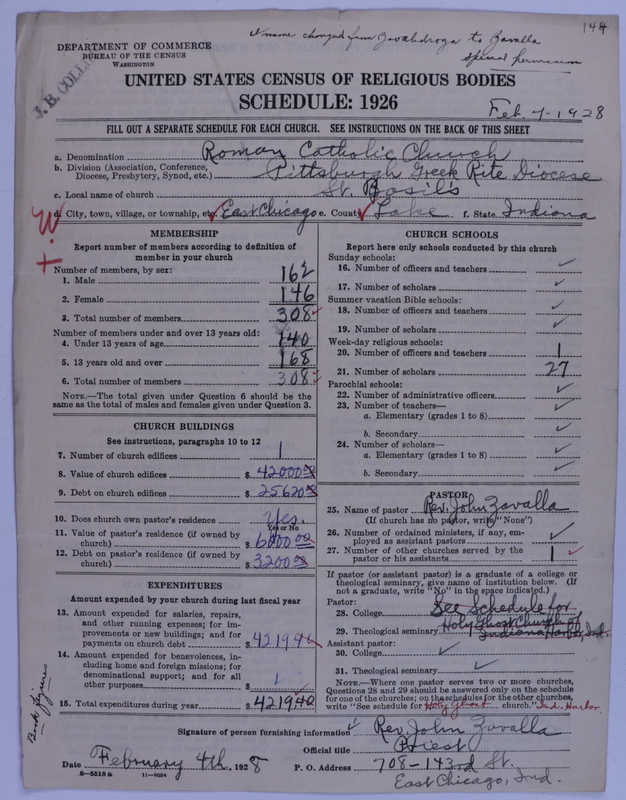 144
name changed from Zavalidroga to Zavalla
special permission
DEPARTMENT OF COMMERCE
BUREAU OF THE CENSUS
WASHINGTON
UNITED STATES CENSUS OF RELIGIOUS BODIES
SCHEDULE: 1926
Feb. 7-1928
FILL OUT A SEPARATE SCHEDULE FOR EACH CHURCH. SEE INSTRUCTIONS ON THE BACK OF THIS SHEET
a. Denomination Roman Catholic Church
b. Division (Association, Conference, Diocese, Presbytery, Synod, etc.) Pittsburgh Greek Rite Diocese
c. Local name of church St. Basil's
d. City, town, village, or township, etc. East Chicago e. County Lake f. State Indiana
MEMBERSHIP
Report number of members according to definition of
member in your church
Number of members, by sex:
1. Male 162
2. Female 146
3. Total number of members 308
Number of members under and over 13 years old:
4. Under 13 years of age 140
5. 13 years old and over 168
6. Total number of members 308
NOTE.—The total given under Question 6 should be the
same as the total of males and females given under Question 3.
CHURCH BUILDINGS
See instructions, paragraphs 10 to 12
7. Number of church edifices 1
8. Value of church edifices $ 42000.00
9. Debt on church edifices $ 25620.00
10. Does church own pastor's residence Yes.
Yes or No
11. Value of pastor's residence (if owned by
church) $ 6000.00
12. Debt on pastor's residence (if owned by
church) $ 3200.00
EXPENDITURES
Amount expended by your church during last fiscal year
13. Amount expended for salaries, repairs,
and other running expenses; for im-
provements or new buildings; and for
payments on church debt $ 4219.40
14. Amount expended for benevolences, in-
cluding home and foreign missions; for
denominational support; and for all
other purposes $
15. Total expenditures during year $ 4219.40
Book figures
CHURCH SCHOOLS
Report here only schools conducted by this church
Sunday schools:
16. Number of officers and teachers
17. Number of scholars
Summer vacation Bible schools:
18. Number of officers and teachers
19. Number of scholars
Week-day religious schools:
20. Number of officers and teachers 1
21. Number of scholars 27
Parochial schools:
22. Number of administrative officers
23. Number of teachers—
a. Elementary (grades 1 to 8)
b. Secondary
24. Number of scholars—
a. Elementary (grades 1 to 8)
b. Secondary
PASTOR
25. Name of pastor Rev. John Zavalla
(If church has no pastor, write "None")
26. Number of ordained ministers, if any, em-
ployed as assistant pastors
27. Number of other churches served by the
pastor or his assistants 1
If pastor (or assistant pastor) is a graduate of a college or
theological seminary, give name of institution below. (If
not a graduate, write "No" in the space indicated.)
Pastor:
28. College See Schedule for
29. Theological seminary Holy Ghost Church of
Indiana Harbor, Ind.
Assistant pastor:
30. College
31. Theological seminary
NOTE.—Where one pastor serves two or more churches,
Questions 28 and 29 should be answered only on the schedule
for one of the churches; on the schedules for the other churches,
write "See schedule for Holy Ghost church." Ind. Harbor
Signature of person furnishing information Rev. John Zavalla
Official title Priest
Date February 4th, 1928 P. O. Address 708-143rd St.
East Chicago, Ind.
8—5518a 11—9554